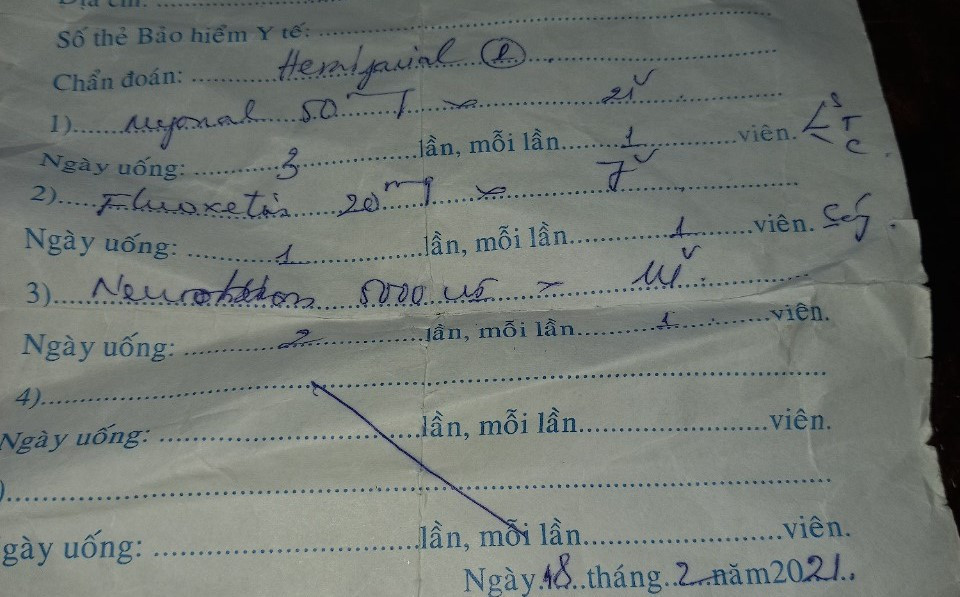 Số thẻ Bảo hiểm Y tế:
Chẩn đoán: Hemifacial
1) Myonal 50mg x 21v
Ngày uống: 3 lần, mỗi lần 1 viên. S T C
2) Fluoxetin 20mg x 7v
Ngày uống: 1 lần, mỗi lần 1 viên. Sáng
3) 5000 x 14v
Ngày uống: 2 lần, mỗi lần 1 viên.
4)
Ngày uống: lần, mỗi lần viên.
)
gày uống: lần, mỗi lần viên.
Ngày 18 tháng 2 năm 2021